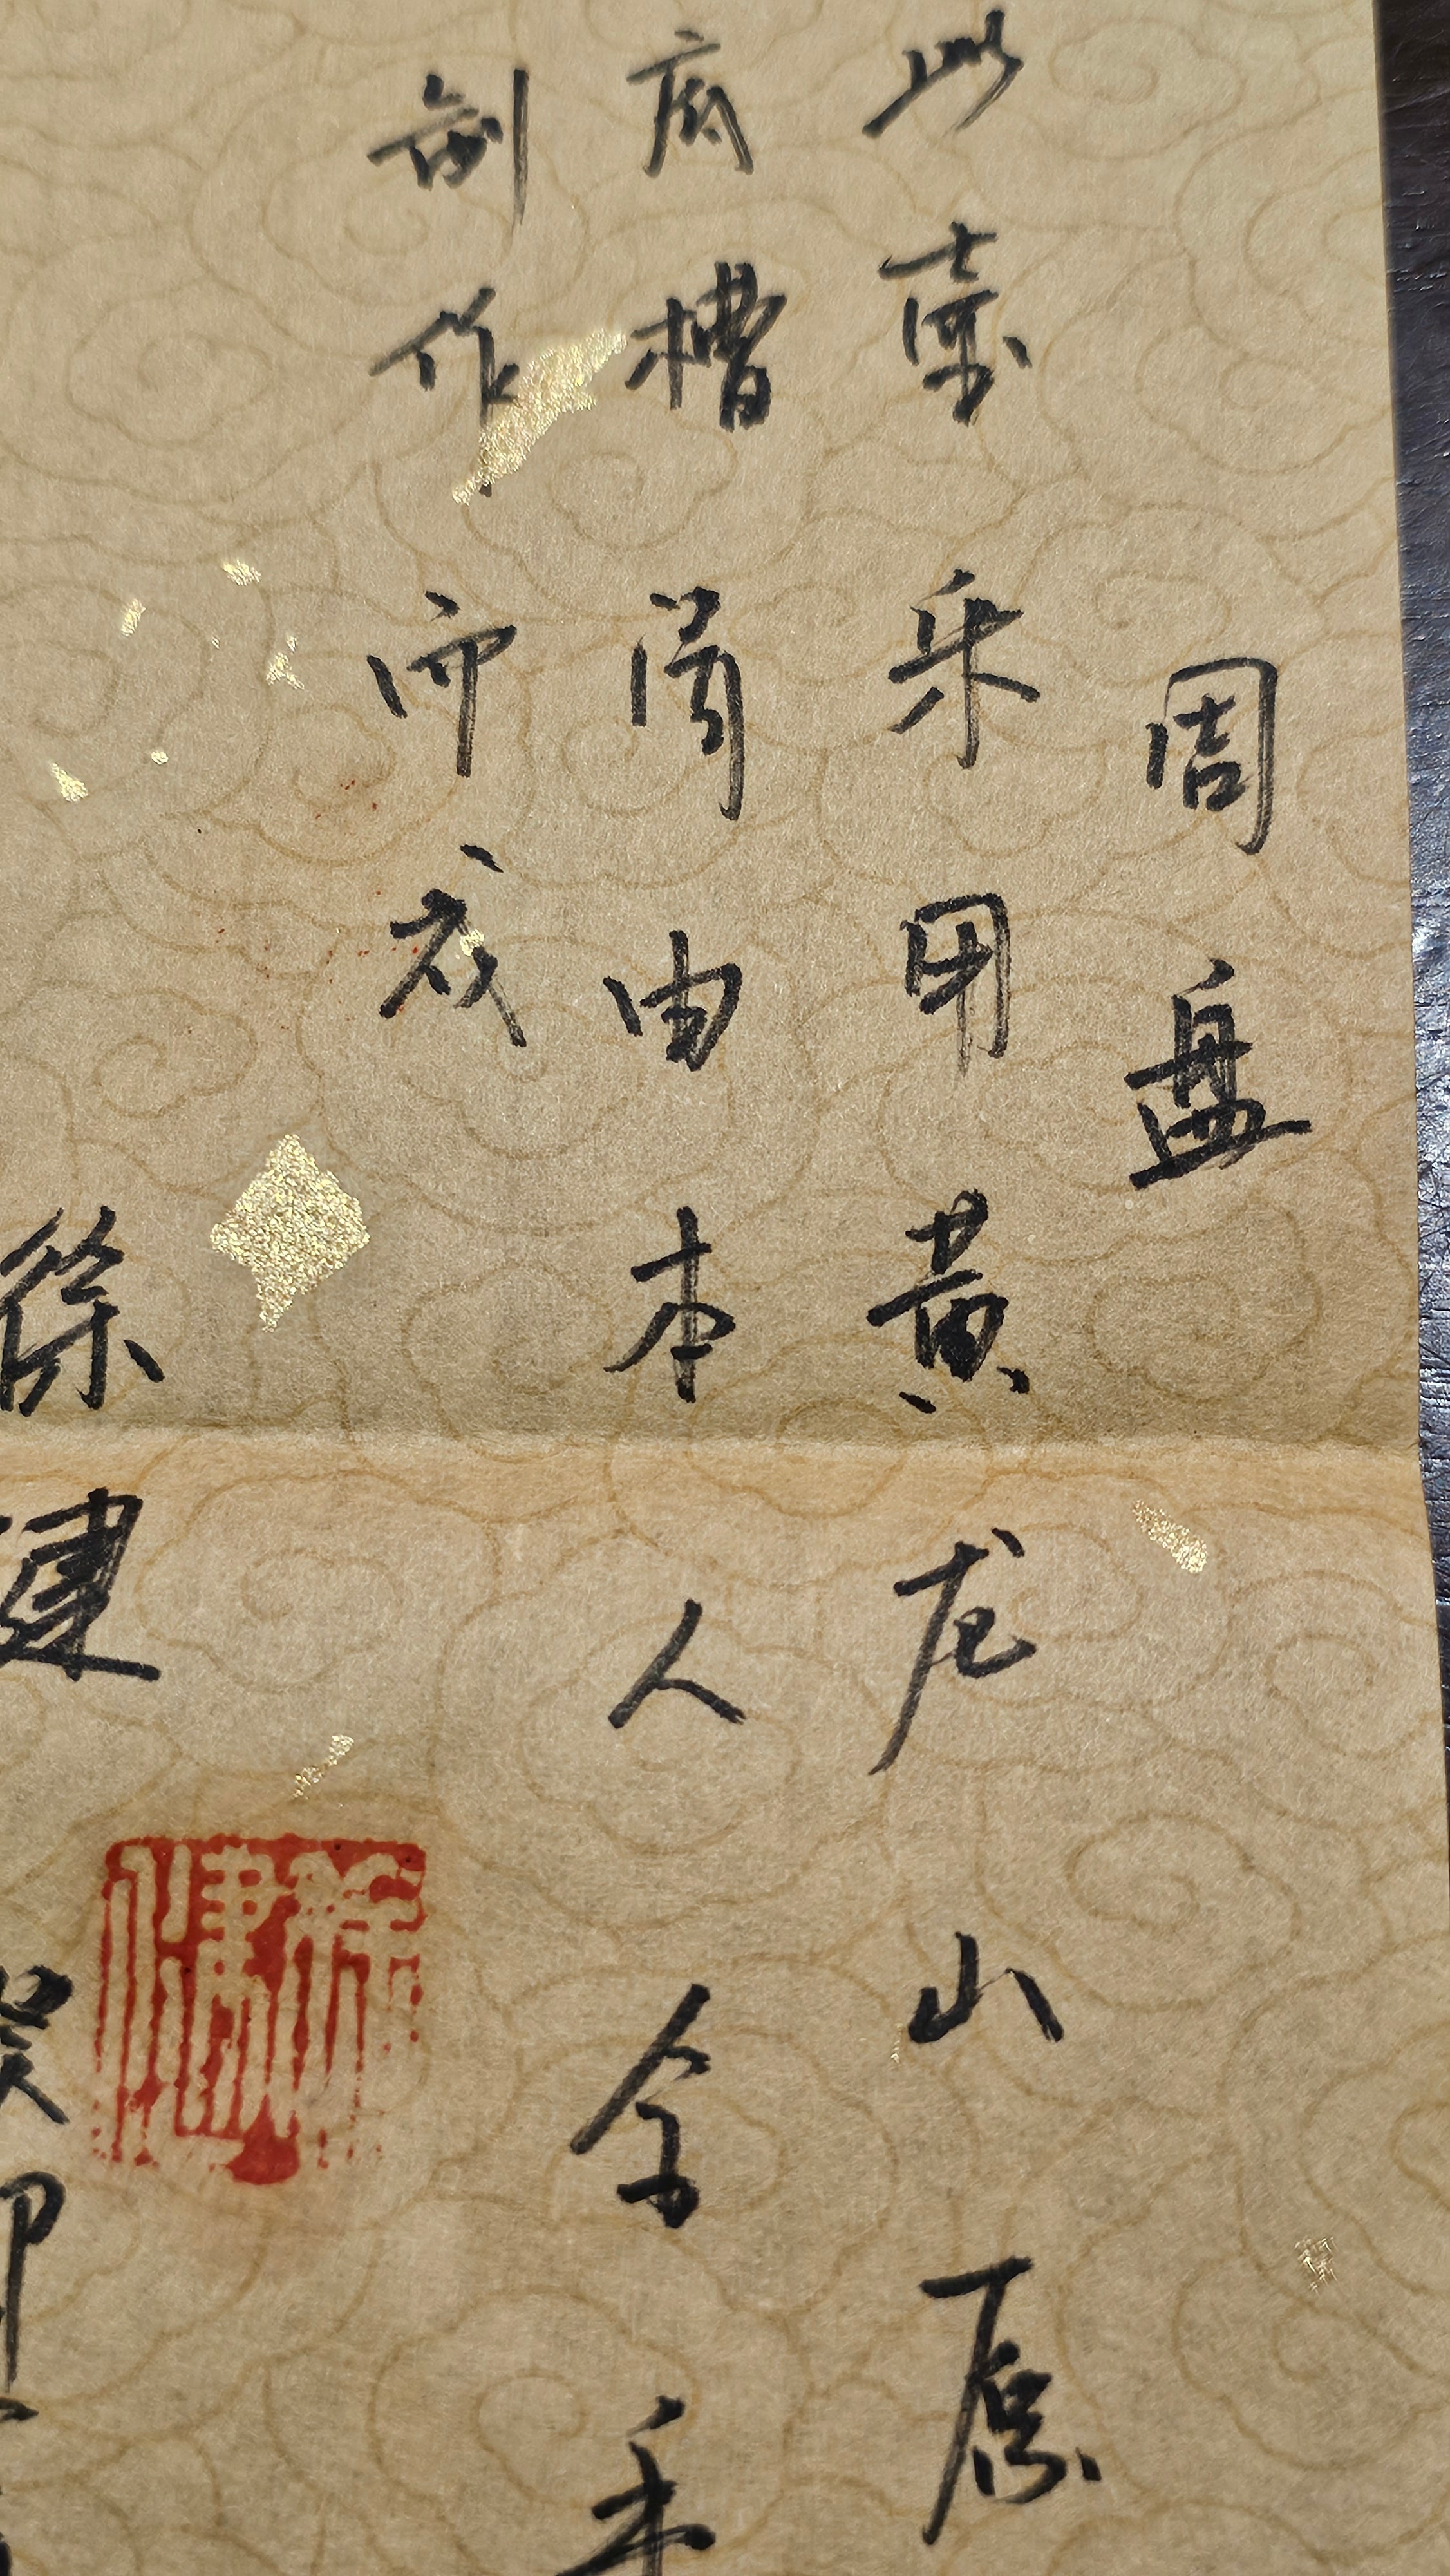 周盘
此壶采用黄龙山原
底槽青由本人全手
制作而成
徐建